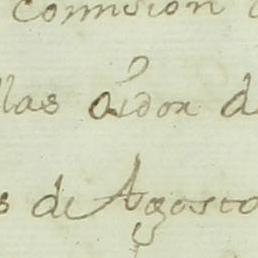 comision
llas oidor d
s de Agosto